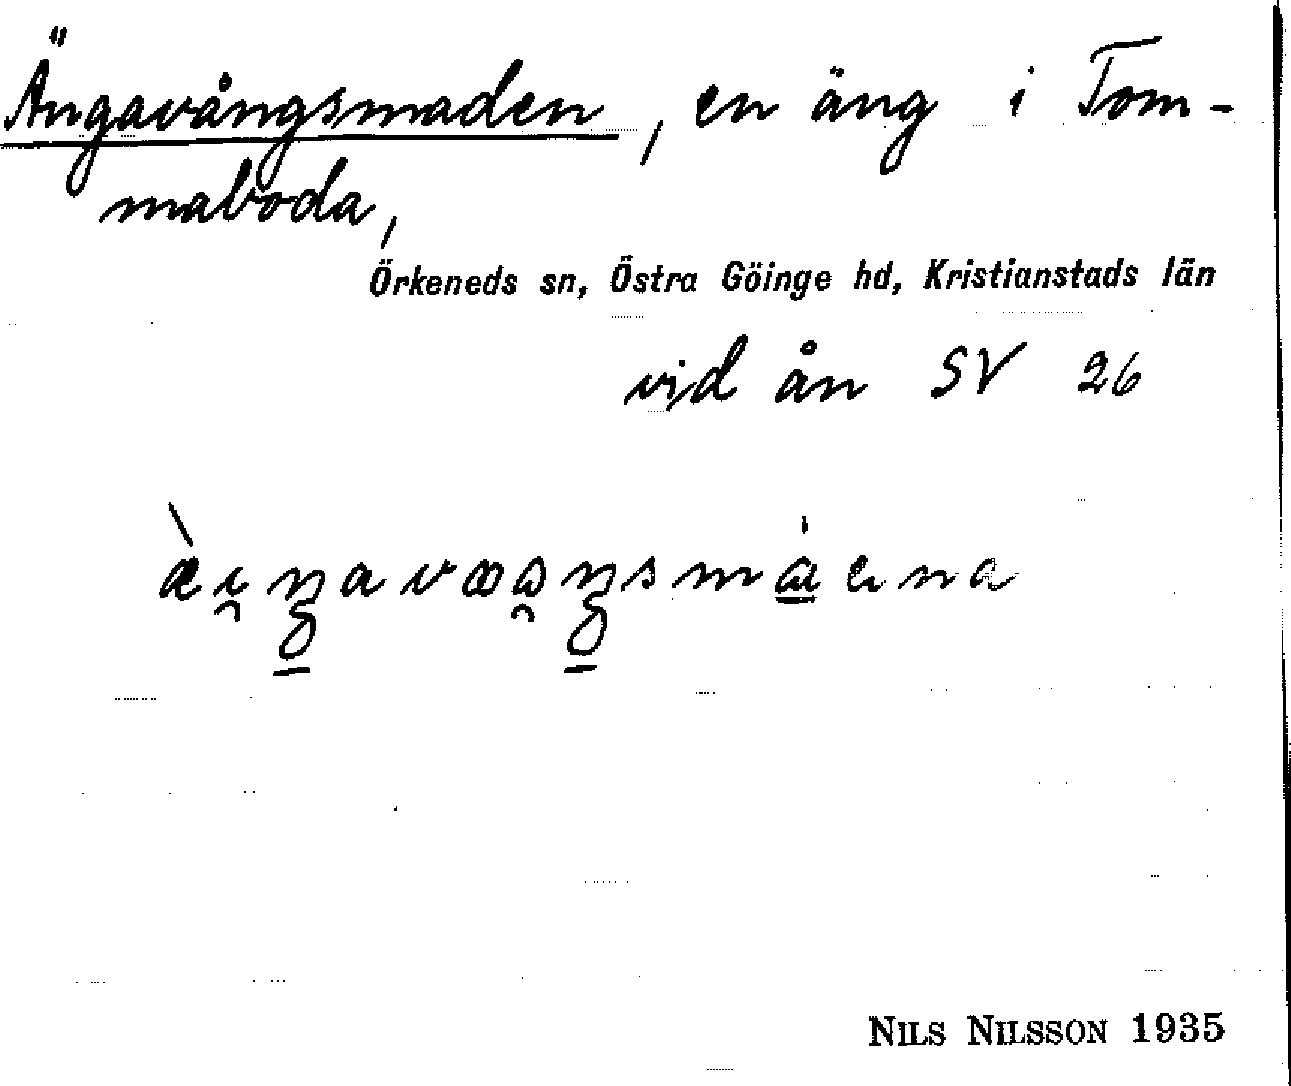 Ängavångsmaden, en äng i Tom-
maboda,
Örkeneds sn, Östra Göinge hd, Kristianstads län
vid ån SV 26
NILS NILSSON 1935